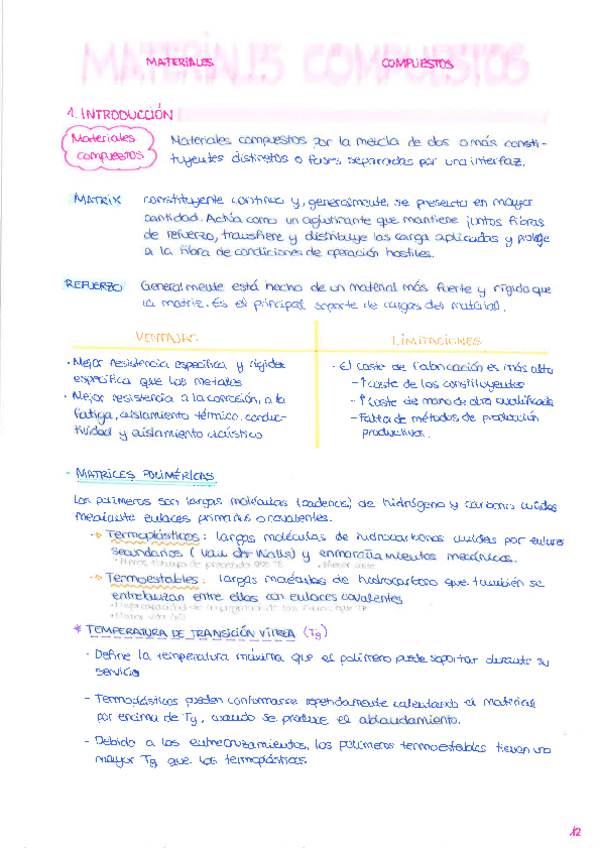 MATERIALES COMPUESTOS
1. INTRODUCCIÓN
Materiales compuestos
Materiales compuestos por la mezcla de dos o más consti-
tuyentes distintos o fases separadas por una interfaz.
MATRIX constituyente continuo y, generalmente, se presenta en mayor
cantidad. Actúa como un aglutinante que mantiene juntos fibras
de refuerzo, transfiere y distribuye las carga aplicadas y protege
a la fibra de condiciones de operación hostiles.
REFUERZO Generalmente está hecho de un material más fuerte y rígido que
la matriz. Es el principal soporte de cargas del material.
VENTAJAS
· Mejor resistencia específica y rigidez
específica que los metales
· Mejor resistencia a la corrosión, a la
fatiga, aislamiento térmico, conduc-
tividad y aislamiento acústico
LIMITACIONES
· El coste de fabricación es más alto
- ↑ coste de los constituyentes
- ↑ coste de mano de obra cualificada
- Falta de métodos de producción
productivos.
- MATRICES POLIMÉRICAS
Los polímeros son largas moléculas (cadenas) de hidrógeno y carbono unidas
mediante enlaces primarios o covalentes.
Termoplásticos: largas moléculas de hidrocarbonos unidas por enlaces
secundarios (Van der Walls) y enmarañamientos mecánicos.
• Menor tiempo de procesado que TE • Menor coste
Termoestables: largas moléculas de hidrocarbono que también se
entrelazan entre ellas con enlaces covalentes
• Mejor capacidad de impregnación de las fibras que TP
* TEMPERATURA DE TRANSICIÓN VÍTREA (Tg)
- Define la temperatura máxima que el polímero puede soportar durante su
servicio
- Termoplásticos pueden conformarse repetidamente calentando el material
por encima de Tg, cuando se produce el ablandamiento.
- Debido a los entrecruzamientos, los polímeros termoestables tienen una
mayor Tg que los termoplásticos.
12